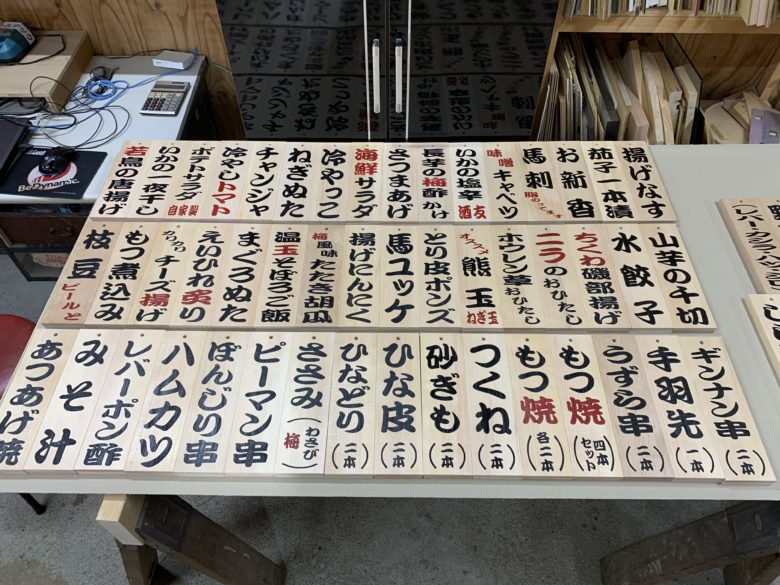 揚げなす
茄子一本漬
お新香
馬刺 脂のってます
味噌キャベツ
いかの塩辛 酒友
長芋の梅酢かけ
さつまあげ
海鮮サラダ
冷やっこ
ねぎぬた
チャンジャ
冷やしトマト
ポテトサラダ 自家製
いかの一夜干し
若鳥の唐揚げ
山芋の千切
水餃子
ちくわ磯部揚げ
ニラのおひたし
ホウレン草おひたし
オススメ 熊玉 ねぎ玉
とり皮ポンズ
馬ユッケ
揚げにんにく
梅風味 たたき胡瓜
温玉そぼろご飯
まぐろぬた
えいひれ炙り
チーズ揚げ
もつ煮込み
枝豆 ビールと
ギンナン串(二本)
手羽先(一本)
うずら串(二本)
もつ焼 四本セット
もつ焼(各二本)
つくね(二本)
砂ぎも(二本)
ひな皮(二本)
ひなどり(二本)
ささみ(わさび 梅)
ピーマン串
ぼんじり串
ハムカツ
レバーポン酢
みそ汁
あつあげ焼
BeDynamic.